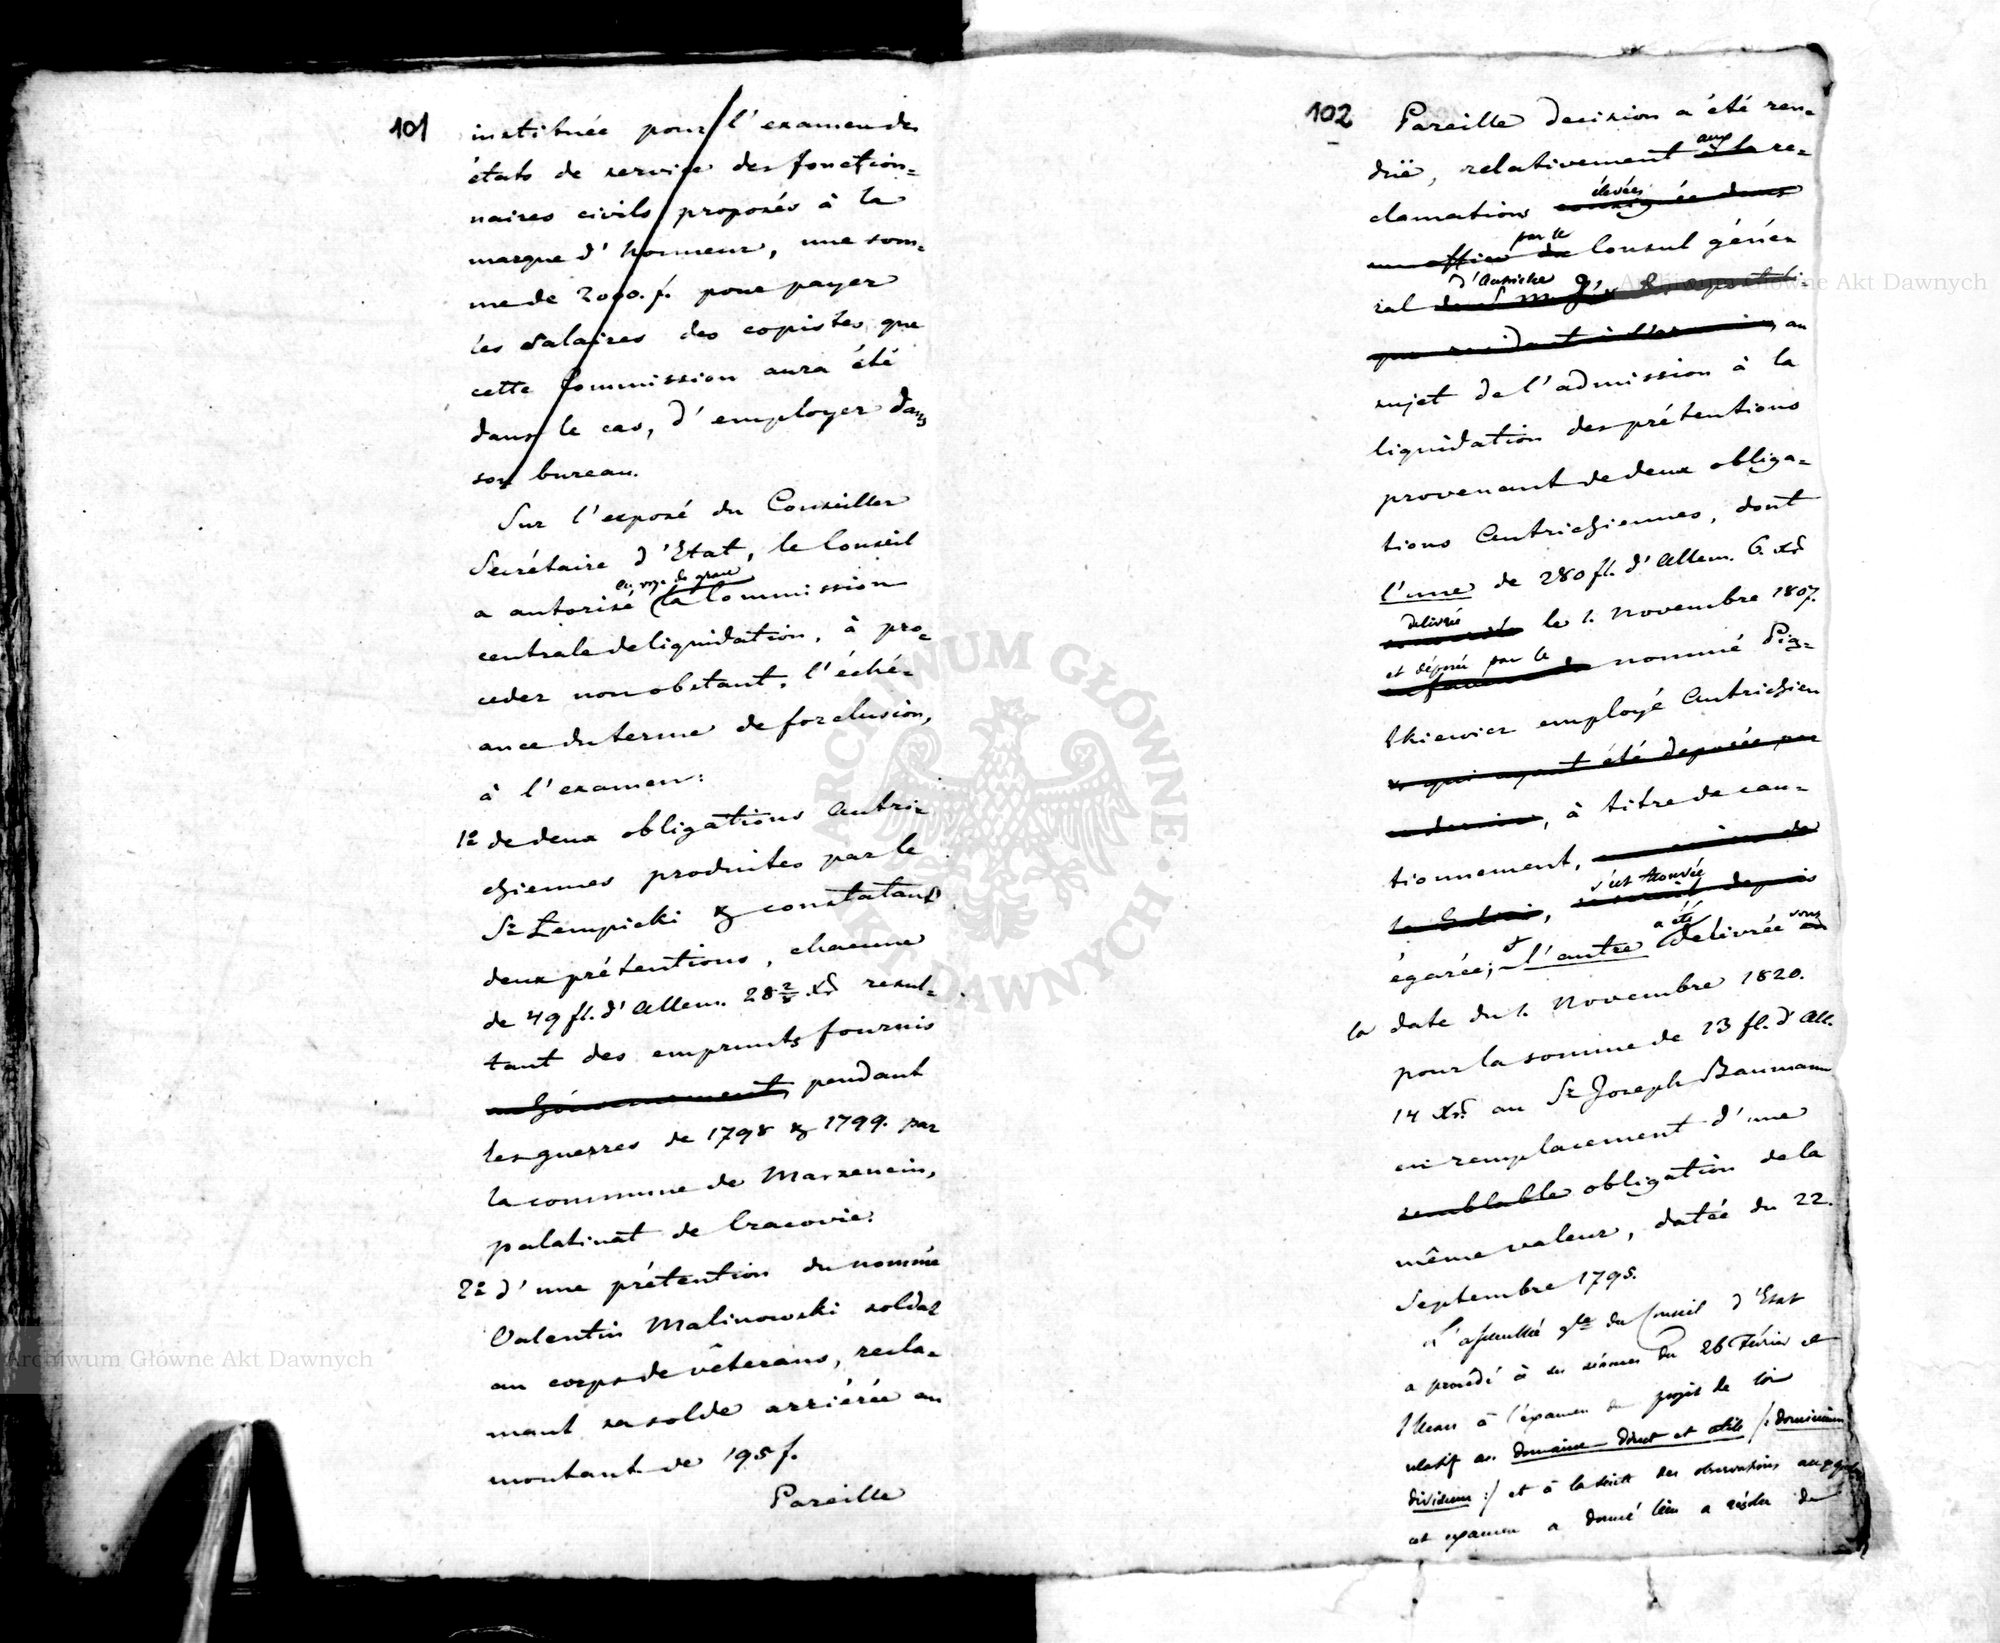 101
instituée pour l'examen des
états de service des fonction=
naires civils proposés à la
marque d'honneur, une som=
me de 2000. f. pour payer
les salaires des copistes que
cette Commission aura été
dans le cas, d'employer dans
son bureau.
Sur l'exposé du Conseiller
Secrétaire d'Etat, le Conseil
en voye de grace
a autorisé la Commission
centrale de liquidation, à pro=
ceder nonobstant, l'éché=
ance du terme de forclusion,
à l'examen:
1º de deux obligations Autri=
chiennes produites par le
Sr Łempicki & constatant
deux prétentions, chacune
de 49 fl. d'Allem. 28 2/8 Xr resul=
tant des emprunts fournis
au Gouvernement, pendant
les guerres de 1798 & 1799. par
la commune de Marzencin,
palatinat de Cracovie.
2º d'une prétention du nommé
Valentin Malinowski soldat
au corps de vêterans, recla=
mant sa solde arriérée au
montant de 195 f.
Pareille
102
Pareille decision a été ren=
aux
düe, relativement à la re=
élevées
clamations consignée dans
par le
un office du Consul géné=
d'Autriche
ral
au
sujet de l'admission à la
liquidation des prétentions
provenant de deux obliga=
tions Autrichiennes, dont
l'une de 280 fl. d'Allem. 6. Xr
delivrée
le 1. Novembre 1807.
et déposée par le
en faveur du nommé Pig=
tkiewicz employé Autrichien
& qui ayant été deposée par
ce dernier, à titre de cau=
tionnement,
s'est trouvée
depuis
a été sous
égarée; & l'autre delivrée en
la date du 1. Novembre 1820.
pour la somme de 23 fl. d'All.
14 Xr. au Sr Joseph Baumann
en remplacement d'une
semblable obligation de la
même valeur, datée du 22.
Septembre 1795.
L'assemblée gle du Conseil d'Etat
a procédé à ses séances du 26 Février et
Mars à l'examen du projet de loi
relatif au domaine direct et utile /: dominium
divisum :/ et à la suite des observations auxquelles
cet examen a donné lieu a résolu de
Archiwum Główne Akt Dawnych
Archiwum Główne Akt Dawnych
ARCHIWUM GŁÓWNE AKT DAWNYCH